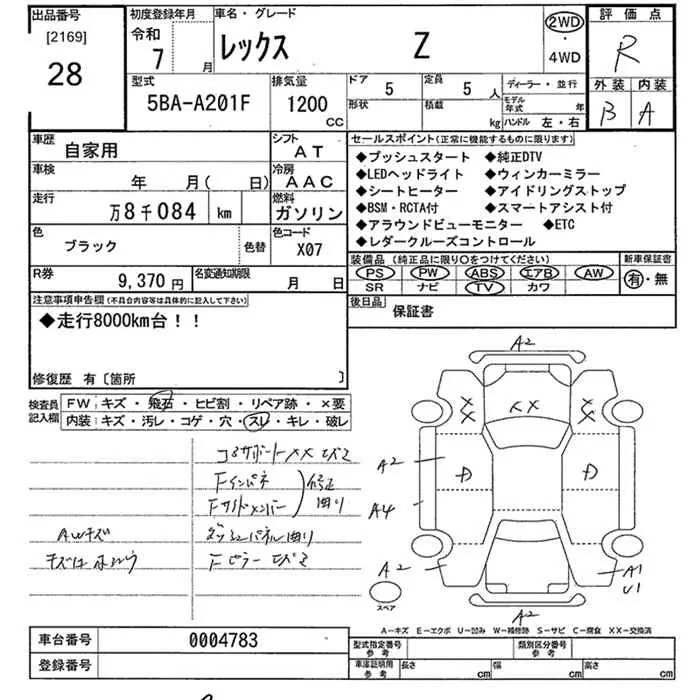 出品番号
[2169]
28
初度登録年月
令和
7 月
車名・グレード
レックス Z
2WD
・
4WD
評価点
R
外装 内装
B A
型式
5BA-A201F
排気量
1200 CC
ドア
5
形状
定員
5 人
積載
kg
ディーラー・並行
モデル年式 年
ハンドル 左・右
車歴
自家用
シフト
AT
車検
年 月( 日)
冷房
AAC
走行
万8千084 km
燃料
ガソリン
色
ブラック
色替
色コード
X07
R券
9,370円
名変通知期限
月 日
セールスポイント(正常に機能するものに限ります)
◆プッシュスタート ◆純正DTV
◆LEDヘッドライト ◆ウィンカーミラー
◆シートヒーター ◆アイドリングストップ
◆BSM・RCTA付 ◆スマートアシスト付
◆アラウンドビューモニター ◆ETC
◆レダークルーズコントロール
装備品(純正品に限り○をつけてください)
新車保証書
PS PW ABS エアB AW
有・無
SR ナビ TV カワ
後日品
保証書
注意事項申告欄(不具合内容等は具体的に記入して下さい)
◆走行8000km台!!
修復歴 有〔箇所 〕
検査員記入欄
FW:キズ・飛石・ヒビ割・リペア跡・×要
内装:キズ・汚レ・コゲ・穴・スレ・キレ・破レ
コアサポートXX
Fインパネ
Fサイドメンバー
修正
曲り
AWキズ
ダッシュパネル曲り
Fピラー
A2
X
X
XX
X
X
A2
D
D
A4
A2
A1
U1
A2
スペア
A-キズ E-エクボ U-凹み W-補修跡 S-サビ C-腐食 XX-交換済
車台番号
0004783
登録番号
型式指定番号
参考
類別区分番号
参考
車庫証明用
参考
長さ cm
幅 cm
高さ cm